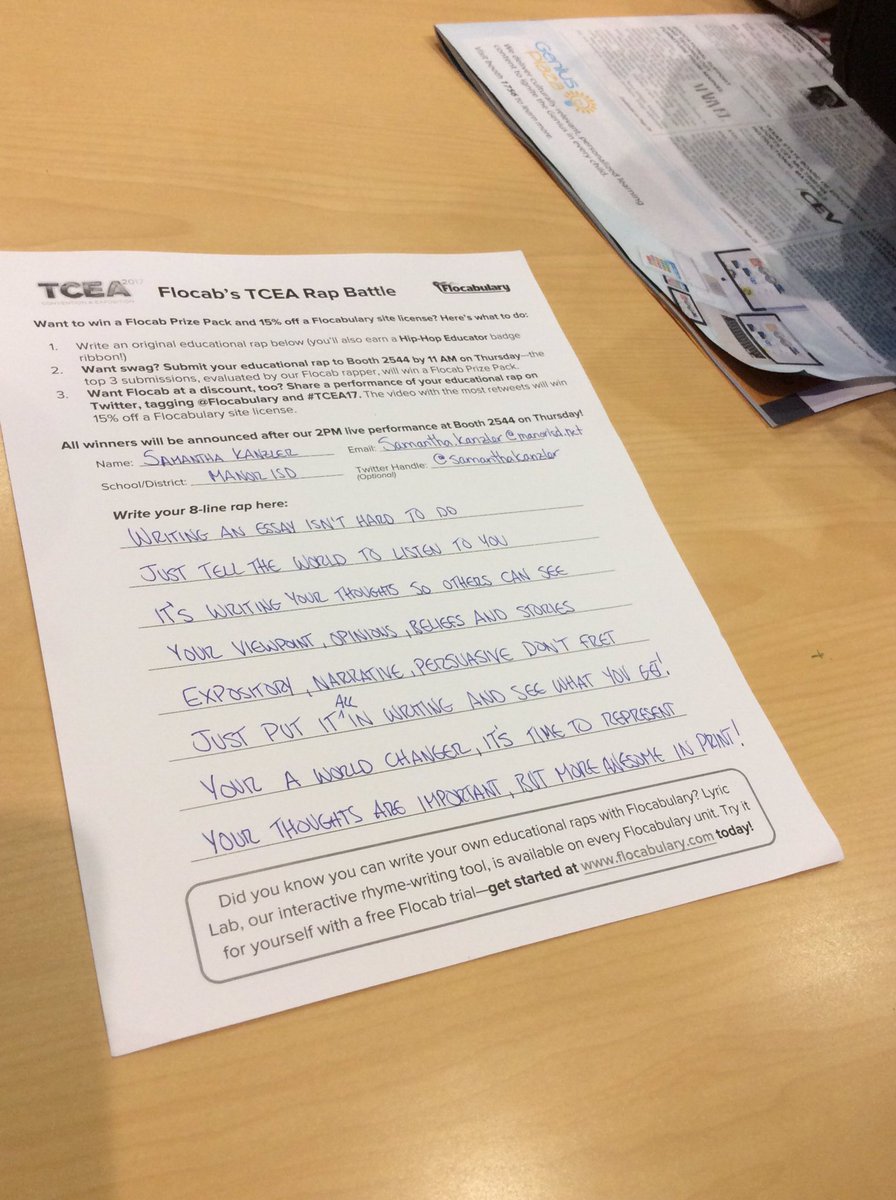 TCEA 2017
Flocab's TCEA Rap Battle
Flocabulary
Want to win a Flocab Prize Pack and 15% off a Flocabulary site license? Here's what to do:
1. Write an original educational rap below (you'll also earn a Hip-Hop Educator badge
ribbon!)
2. Want swag? Submit your educational rap to Booth 2544 by 11 AM on Thursday—the
top 3 submissions, evaluated by our Flocab rapper, will win a Flocab Prize Pack.
3. Want Flocab at a discount, too? Share a performance of your educational rap on
Twitter, tagging @Flocabulary and #TCEA17. The video with the most retweets will win
15% off a Flocabulary site license.
All winners will be announced after our 2PM live performance at Booth 2544 on Thursday!
Name: SAMANTHA KANZLER Email: Samantha.Kanzler@manorisd.net
School/District: MANOR ISD Twitter Handle: @samanthakanzler
(Optional)
Write your 8-line rap here:
WRITING AN ESSAY ISN'T HARD TO DO
JUST TELL THE WORLD TO LISTEN TO YOU
IT'S WRITING YOUR THOUGHTS SO OTHERS CAN SEE
YOUR VIEWPOINT, OPINIONS, BELIEFS AND STORIES
EXPOSITORY, NARRATIVE, PERSUASIVE DON'T FRET
JUST PUT IT ALL IN WRITING AND SEE WHAT YOU GET!
YOUR A WORLD CHANGER, IT'S TIME TO REPRESENT
YOUR THOUGHTS ARE IMPORTANT, BUT MORE AWESOME IN PRINT!
Did you know you can write your own educational raps with Flocabulary? Lyric
Lab, our interactive rhyme-writing tool, is available on every Flocabulary unit. Try it
for yourself with a free Flocab trial—get started at www.flocabulary.com today!
Genius
Plaza
We deliver culturally relevant, personalized learning
content to ignite the genius in every child.
Visit booth 1756 to learn more.
CEV